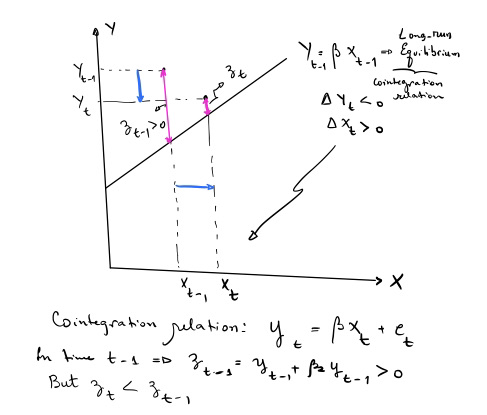 Y
Y_{t-1} = β X_{t-1} ⇒ Long-run
Equilibrium
cointegration
relation
Y_{t-1}
Y_t
z_t
z_{t-1} > 0
Δ Y_t < 0
Δ X_t > 0
X_{t-1} X_t
X
Cointegration relation: y_t = β x_t + e_t
In time t-1 ⇒ z_{t-1} = y_{t-1} + β_2 y_{t-1} > 0
But z_t < z_{t-1}